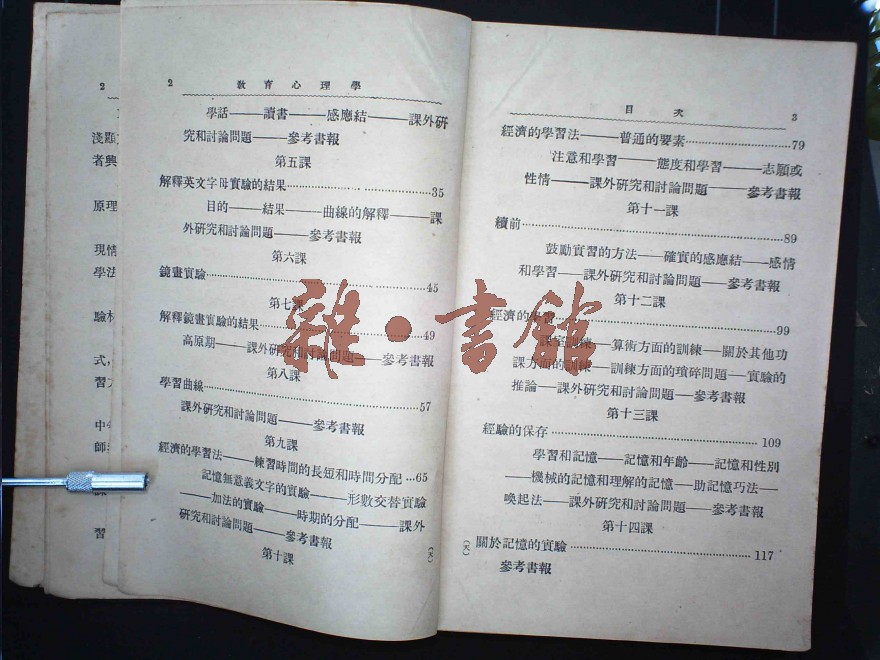 2 教育心理學
學話——讀書——感應結——課外研
究和討論問題——參考書報
第五課
解釋英文字母實驗的結果……35
目的——結果——曲線的解釋——課
外研究和討論問題——參考書報
第六課
鏡畫實驗……45
第七課
解釋鏡畫實驗的結果……49
高原期——課外研究和討論問題——參考書報
第八課
學習曲線……57
課外研究和討論問題——參考書報
第九課
經濟的學習法——練習時間的長短和時間分配…65
記憶無意義文字的實驗——形數交替實驗
——加法的實驗——時期的分配——課外
研究和討論問題——參考書報
第十課
(天)
目次 3
經濟的學習法——普通的要素……79
注意和學習——態度和學習——志願或
性情——課外研究和討論問題——參考書報
第十一課
續前……89
鼓勵實習的方法——確實的感應結——感情
和學習——課外研究和討論問題——參考書報
第十二課
經濟的學習……99
課室訓練——算術方面的訓練——關於其他功
課方面的訓練——訓練方面的瑣碎問題——實驗的
推論——課外研究和討論問題——參考書報
第十三課
經驗的保存……109
學習和記憶——記憶和年齡——記憶和性別
——機械的記憶和理解的記憶——助記憶巧法——
喚起法——課外研究和討論問題——參考書報
第十四課
(天)
關於記憶的實驗……117
參考書報
2
淺顯
者興
原理
現情
學法
驗材
式,
習
中
師
習
雜·書館